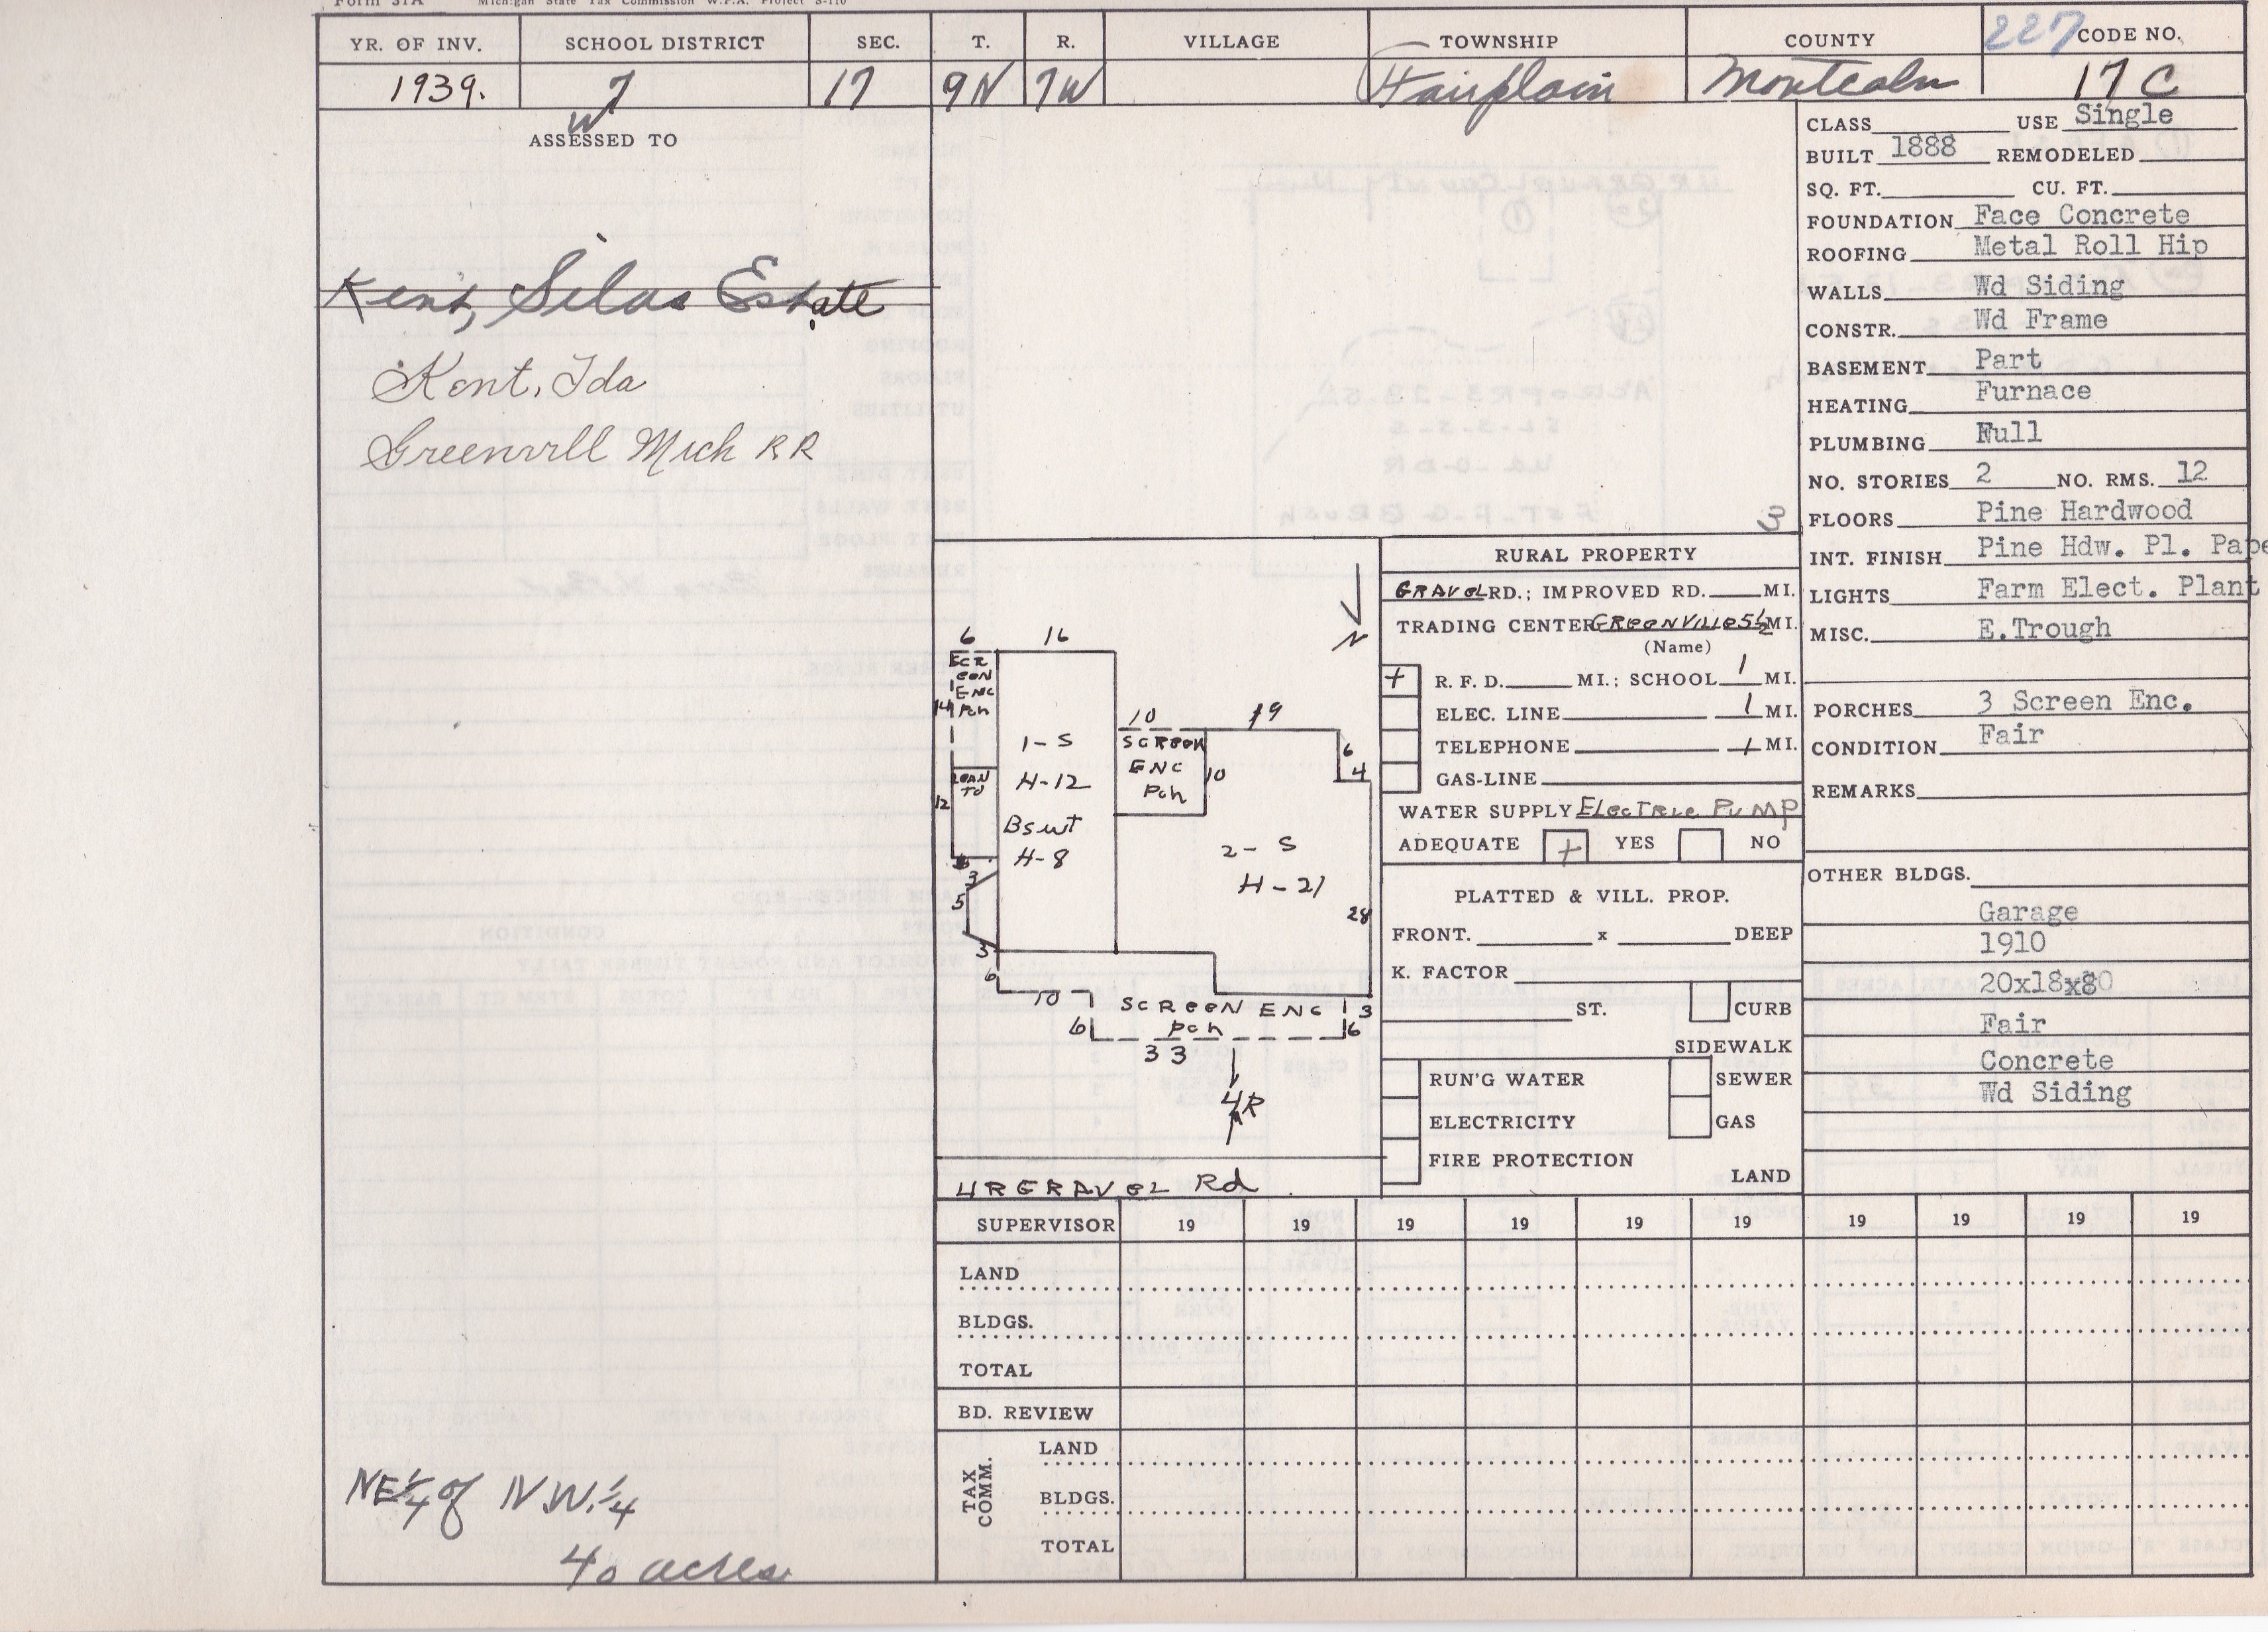 Form 31A Michigan State Tax Commission W.P.A. Project S-110
YR. OF INV. SCHOOL DISTRICT SEC. T. R. VILLAGE TOWNSHIP COUNTY 227 CODE NO.
1939. 7 17 9N 7W Fairplain Montcalm 17 C
W
ASSESSED TO
Kent, Silas Estate
Kent, Ida
Greenvill Mich RR
NE 1/4 of N.W. 1/4
40 acres
3
N
6 16
SCREEN ENC Pch
14
1-S
H-12
Bsmt
H-8
LEAN TO
12
3
5
3
6
10
SCREEN ENC Pch
10
19
6
4
2-S
H-21
28
10
SCREEN ENC 13
6 pch 6
33
4R
UR GRAVEL Rd
RURAL PROPERTY
GRAVEL RD.; IMPROVED RD. MI.
TRADING CENTER GREENVILLE 5 1/2 MI.
(Name)
+ R. F. D. MI.; SCHOOL 1 MI.
ELEC. LINE 1 MI.
TELEPHONE 1 MI.
GAS-LINE
WATER SUPPLY Electric PUMP
ADEQUATE + YES NO
PLATTED & VILL. PROP.
FRONT. x DEEP
K. FACTOR
ST. CURB
SIDEWALK
RUN'G WATER SEWER
ELECTRICITY GAS
FIRE PROTECTION
LAND
CLASS USE Single
BUILT 1888 REMODELED
SQ. FT. CU. FT.
FOUNDATION Face Concrete
ROOFING Metal Roll Hip
WALLS Wd Siding
CONSTR. Wd Frame
BASEMENT Part
HEATING Furnace
PLUMBING Full
NO. STORIES 2 NO. RMS. 12
FLOORS Pine Hardwood
INT. FINISH Pine Hdw. Pl. Pape
LIGHTS Farm Elect. Plant
MISC. E.Trough
PORCHES 3 Screen Enc.
CONDITION Fair
REMARKS
OTHER BLDGS.
Garage
1910
20x18x8
Fair
Concrete
Wd Siding
SUPERVISOR 19 19 19 19 19 19 19 19 19 19
LAND
BLDGS.
TOTAL
BD. REVIEW
TAX COMM.
LAND
BLDGS.
TOTAL